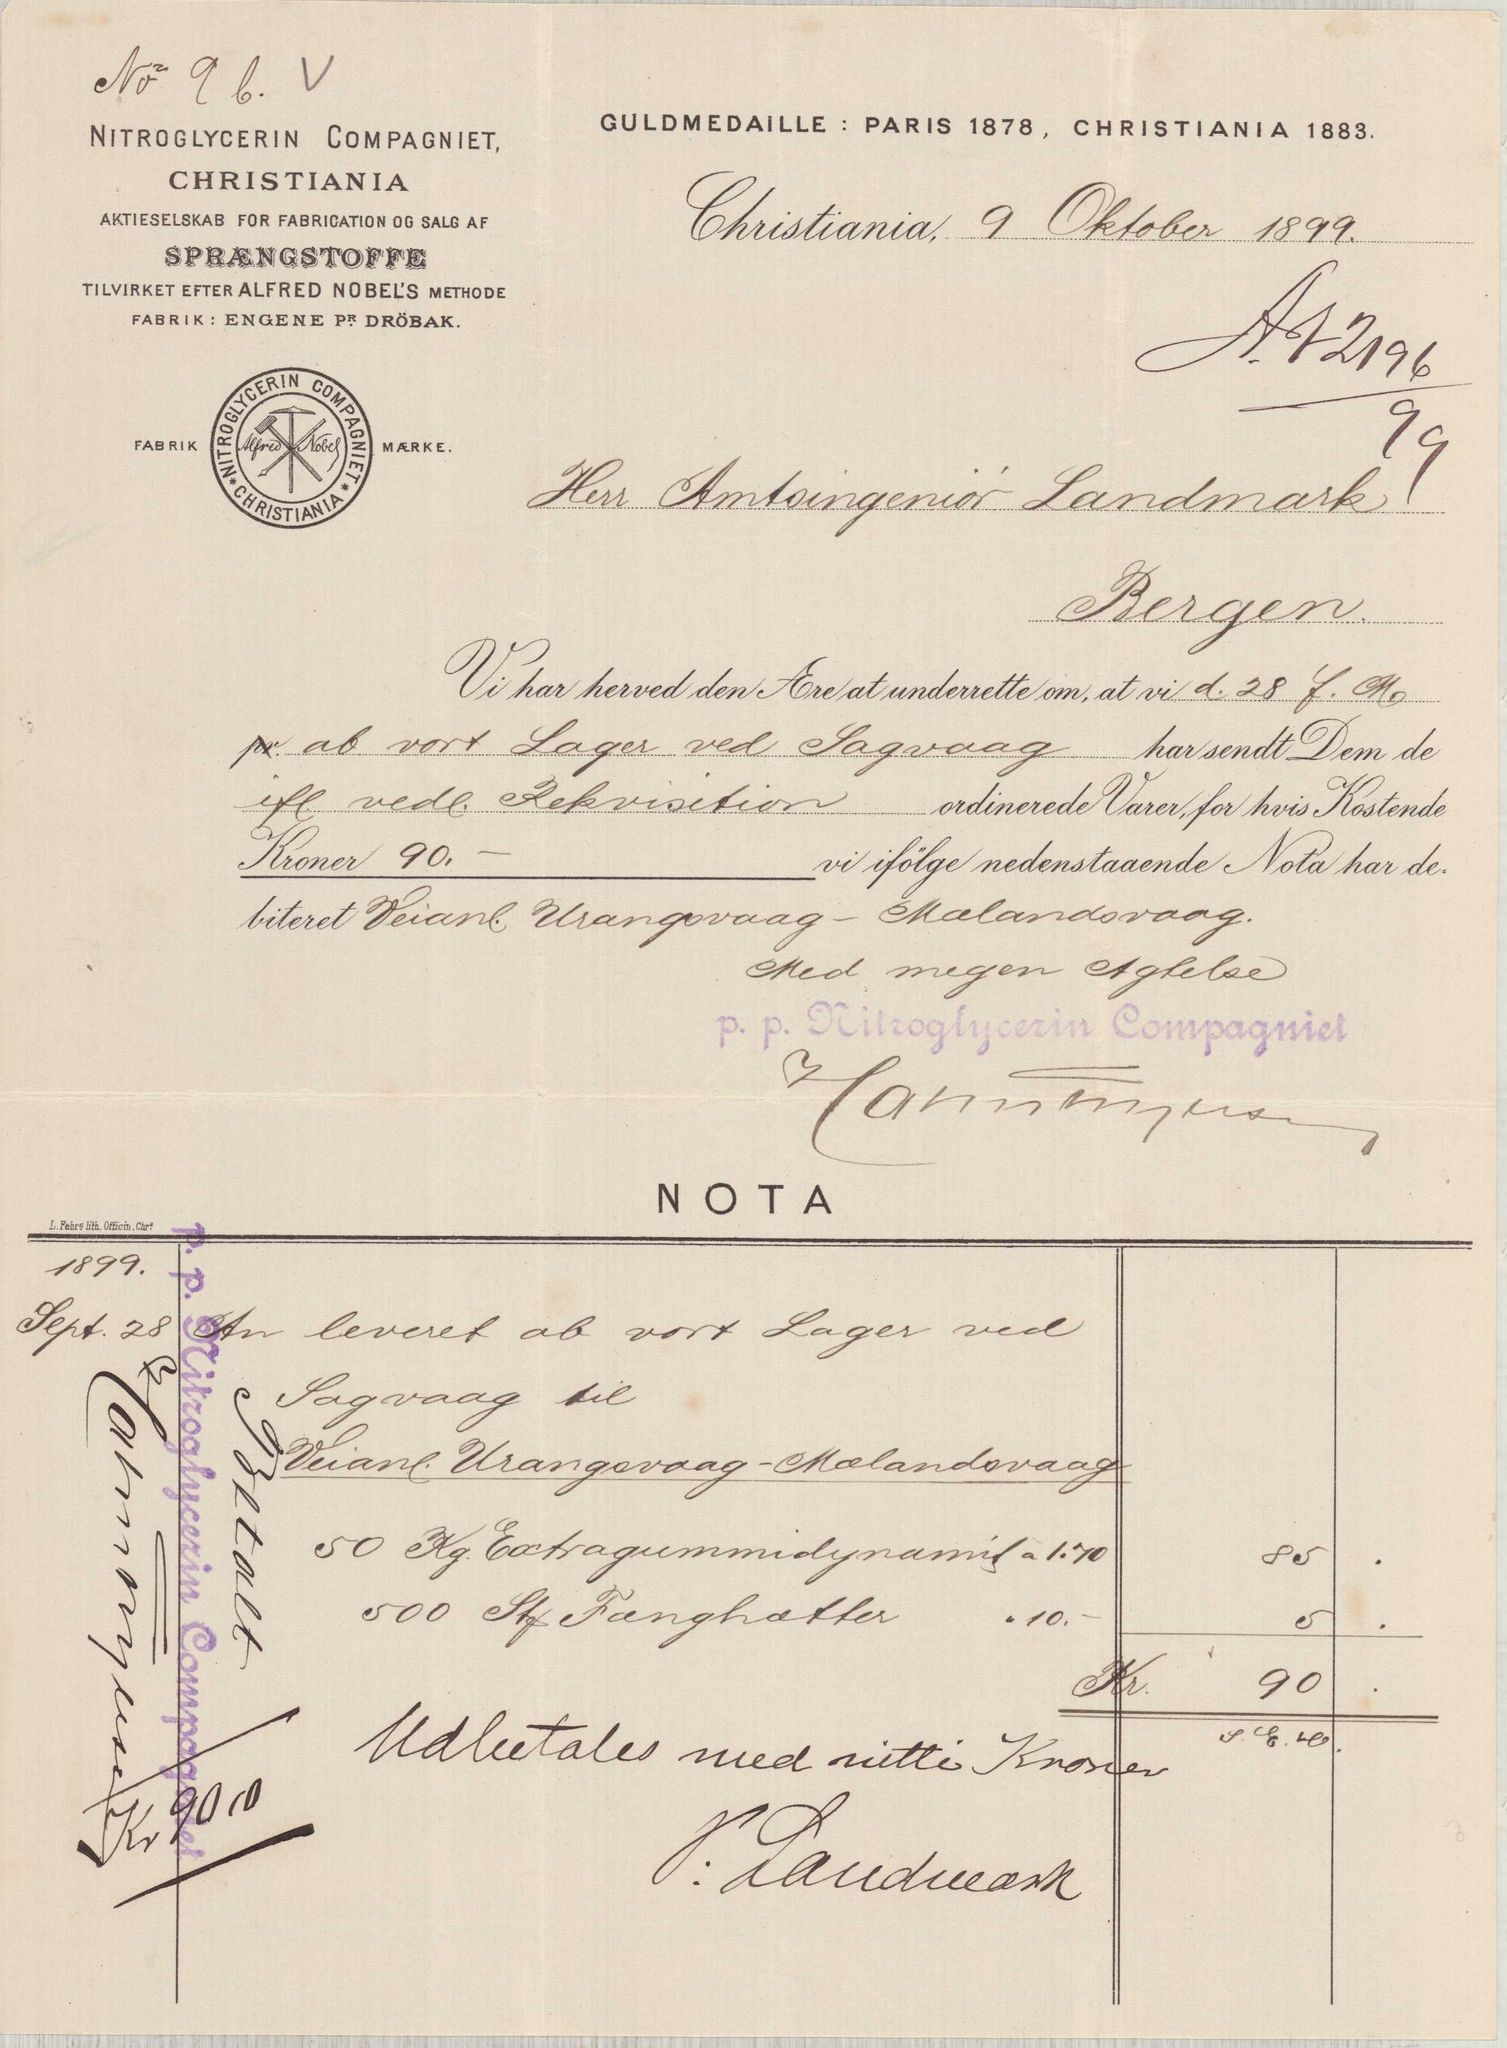 No 9 b. V
NITROGLYCERIN COMPAGNIET,
CHRISTIANIA
AKTIESELSKAB FOR FABRICATION OG SALG AF
SPRÆNGSTOFFE
TILVIRKET EFTER ALFRED NOBEL'S METHODE
FABRIK: ENGENE PR. DRÖBAK.
FABRIK MÆRKE.
NITROGLYCERIN COMPAGNIET
* CHRISTIANIA *
Alfred Nobel
GULDMEDAILLE: PARIS 1878, CHRISTIANIA 1883.
Christiania, 9 Oktober 1899.
2196
99
Herr Amtsingeniör Landmark
Bergen.
Vi har herved den Ære at underrette om, at vi d. 28 f. M.
pr. ab vort Lager ved Sagvaag har sendt Dem de
ifl. vedl. Rekvisition ordinerede Varer, for hvis Kostende
Kroner 90.- vi ifölge nedenstaaende Nota har de-
biteret Veianl. Urangsvaag - Mælandsvaag.
Med megen Agtelse
p. p. Nitroglycerin Compagniet
NOTA
L. Fehrs lith. Officin, Chra
1899.
Sept. 28 An leveret ab vort Lager ved
Sagvaag til
Veianl. Urangsvaag - Mælandsvaag
50 Kg. Extragummidynamit a 1.70 85 .
500 Stk Fænghætter " 10.- 5 .
Kr. 90 .
S. E. &O.
Udbetales med nitti Kroner
P. Landmark
Betalt
p. p. Nitroglycerin Compagniet
Kr 90 10